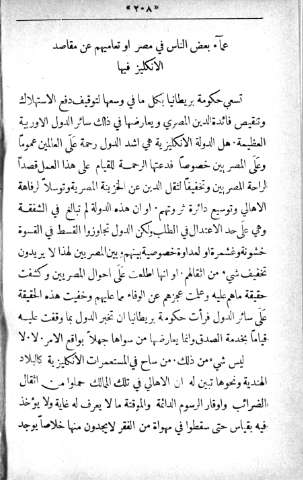 «٢٠٨»
عماء بعض الناس في مصر او تعاميهم عن مقاصد
الانكليز فيها
تسعى حكومة بريطانيا بكل ما في وسعها لتوقيف دفع الاستهلاك
وتنقيص فائدة الدين المصري ويعارضها في ذلك سائر الدول الاوربية
العظيمة. هل الدولة الانكليزية هي اشد الدول رحمة على العالمين عموماً
وعلى المصريين خصوصاً فدعتها الرحمة للقيام على هذا العمل قصداً
لراحة المصريين وتخفيفاً لثقل الدين عن الخزينة المصرية وتوسلاً لرفاهة
الاهالي وتوسيع دائرة ثروتهم. او ان هذه الدولة لم تبالغ في الشفقة
وهي على حد الاعتدال في الطلب ولكن الدول تجاوزوا القسط في القسوة
خشونة وغشمرة او لعداوة خصوصية بينهم وبين المصريين لهذا لا يريدون
تخفيف شيء من اثقالهم. او انها اطلعت على احوال المصريين وكشفت
حقيقة ماهم عليه وعلمت عجزهم عن الوفاء بما عليهم وخفيت هذه الحقيقة
على سائر الدول فرأت حكومة بريطانيا ان تخبر الدول بما وقفت عليه
قياماً بخدمة الصدق وانما يعارضها من سواها جهلاً بواقع الامر. لا. لا
ليس شيء من ذلك. من ساح في المستعمرات الانكليزية كالبلاد
الهندية ونحوها تبين له ان الاهالي في تلك الممالك حملوا من اثقال
الضرائب واوقار الرسوم الدائمة والموقتة ما لا يعرف له غاية ولا يؤخذ
فيه بقياس حتى سقطوا في مهواة من الفقر لايجدون منها خلاصاً يوجد